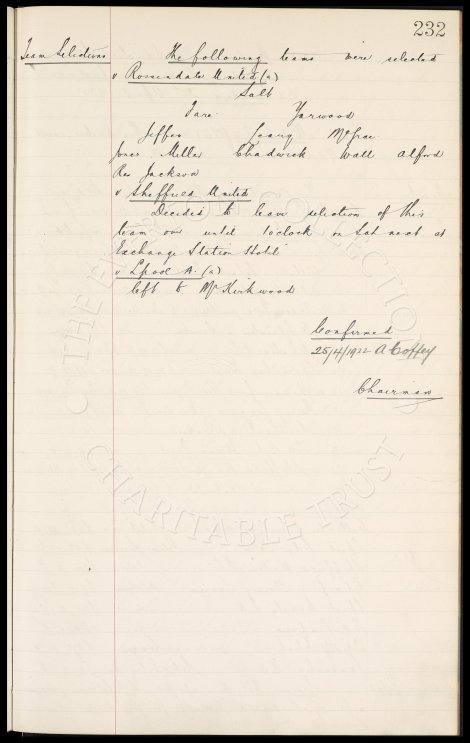 232
Team Selections The following teams were selected
v Rossendale United (a)
Salt
Tare Yarwood
Jeffers Leary McGrae
Jones Miller Chadwick Wall Alford
Res Jackson
v Sheffield United
Decided to leave selection of this
team over until 1 o'clock on Sat next at
Exchange Station Hotel
v L'pool A. (a)
left to Mr Kirkwood
Confirmed
25/4/1922 A Coffey
Chairman
THE EVERTON COLLECTION
CHARITABLE TRUST